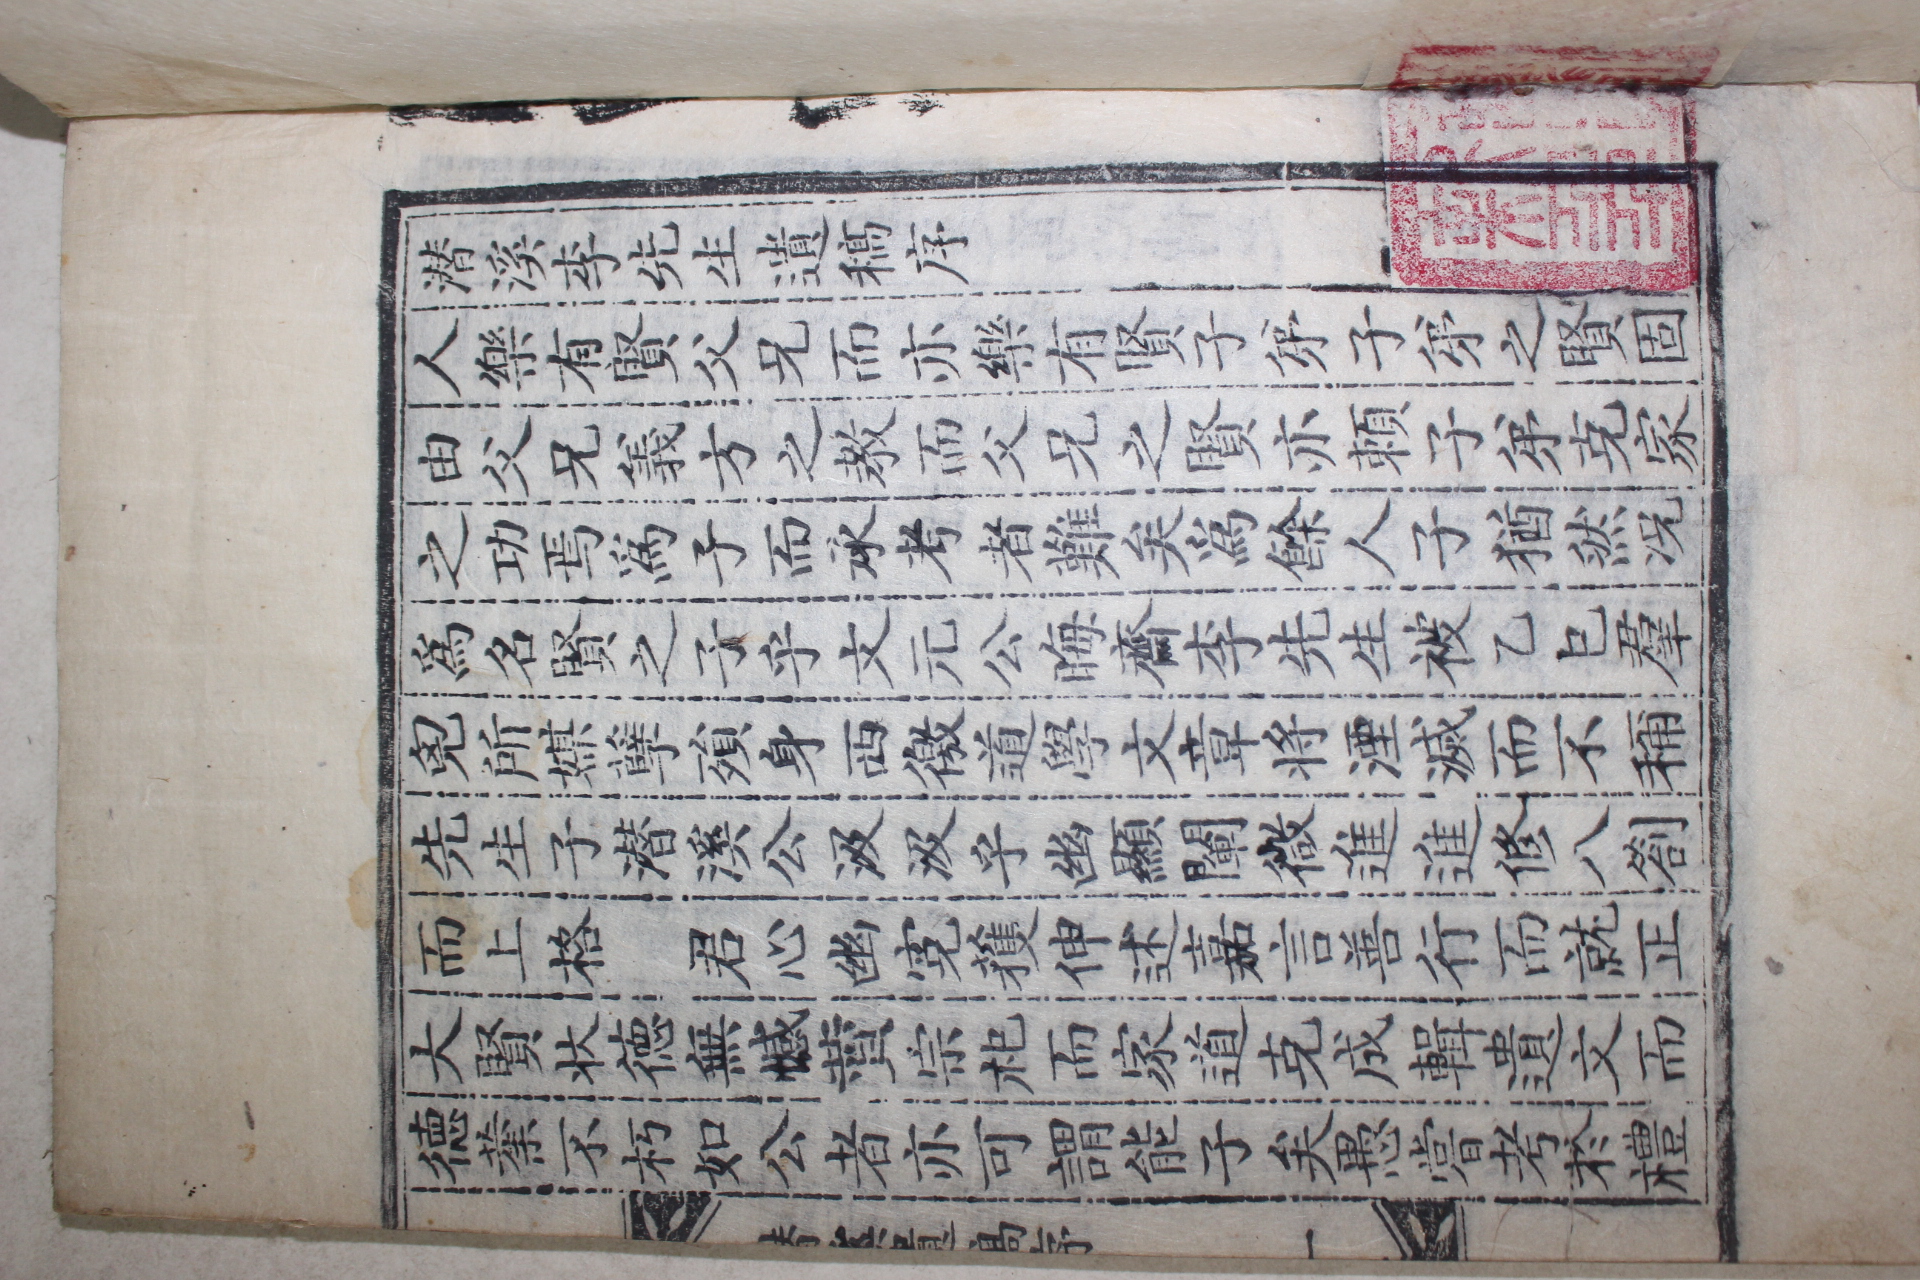 潛溪李先生遺稿序
人樂有賢父兄而亦樂有賢子弟子弟之賢固
由父兄義方之教而父兄之賢亦賴子弟克家
之功焉爲子而承考者難矣爲餘人子猶然况
爲名賢之子乎文元公晦齋李先生被乙巳羣
兇所媒孼殞身西徼道學文章将湮滅而不稱
先生子潛溪公汲汲乎幽顯闡微進進修八劄
而上格 君心幽寃獲伸述嘉言善行而就正
大賢状德無憾營宗祀而家道克成輯遺文而
德業不朽如公者亦可謂能子矣愚嘗考於禮
潛溪遺稿序 一